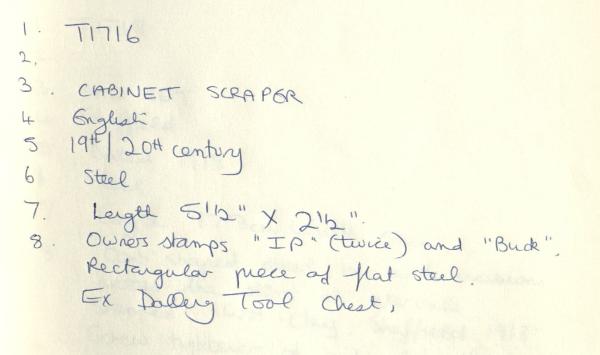 1. T1716
2.
3. CABINET SCRAPER
4 English
5 19th/20th century
6 Steel
7. Length 5½" X 2½".
8. Owners stamps "IP" (twice) and "Buck".
Rectangular piece of flat steel.
Ex Tool Chest,